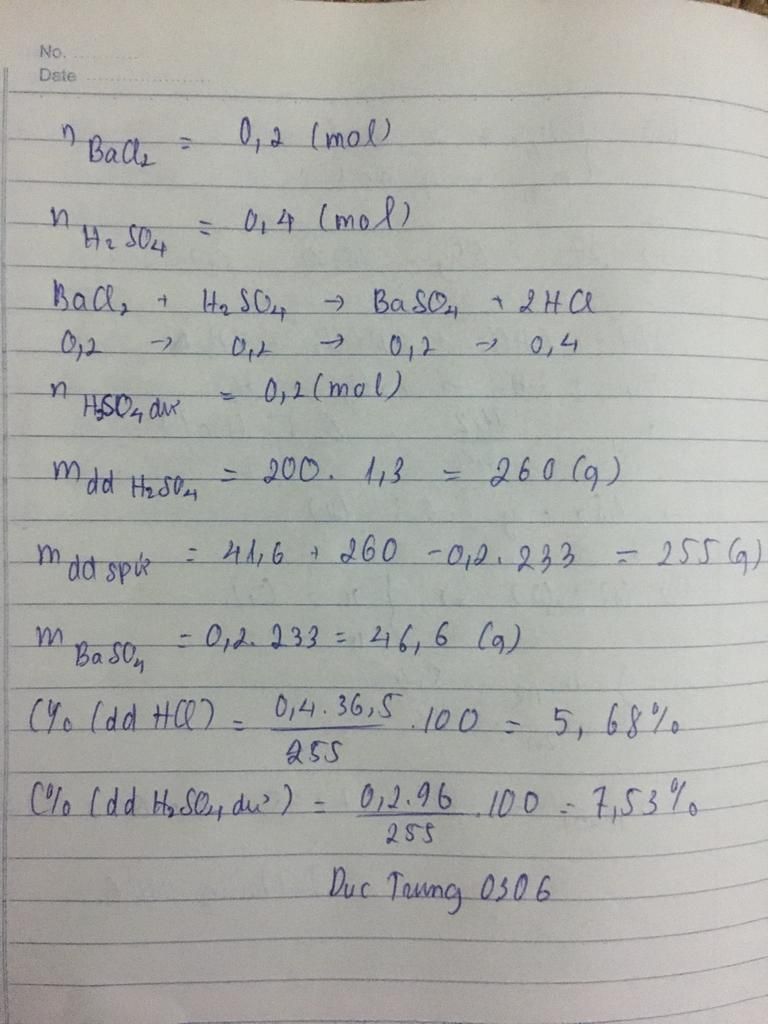 No.
Date
n BaCl2 = 0,2 (mol)
n H2SO4 = 0,4 (mol)
BaCl2 + H2SO4 → BaSO4 + 2HCl
0,2 → 0,2 → 0,2 → 0,4
n H2SO4 dư = 0,2 (mol)
m dd H2SO4 = 200. 1,3 = 260 (g)
m dd spứ = 41,6 + 260 - 0,2. 233 = 255 (g)
m BaSO4 = 0,2. 233 = 46,6 (g)
C% (dd HCl) = 0,4. 36,5 / 255 .100 = 5,68%
C% (dd H2SO4 dư) = 0,2.96 / 255 .100 = 7,53%
Duc Trung 0306